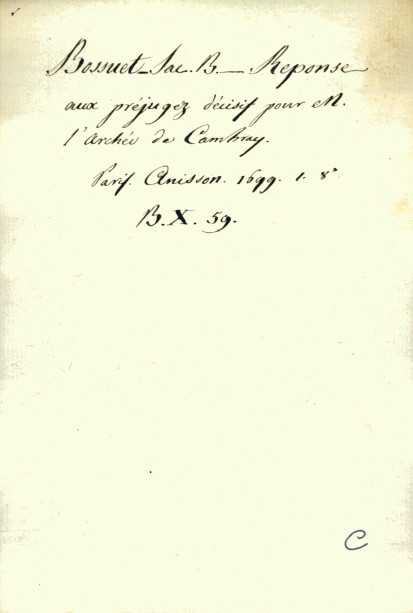 Bossuet Jac. B. — Reponse
aux préjugez décisif pour M.
l'Archée de Cambray.
Paris. Anisson. 1699. 1. 8°
B.X. 59.
C